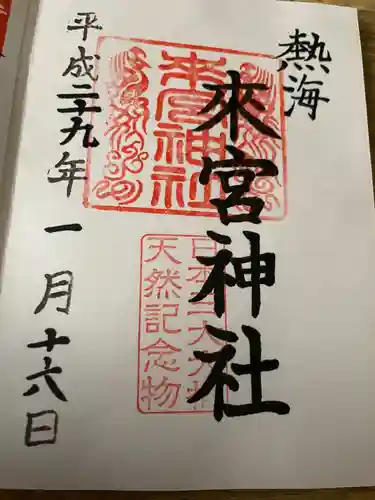 熱海
來宮神社
来宮神社
天然記念物
平成二十九年一月十六日